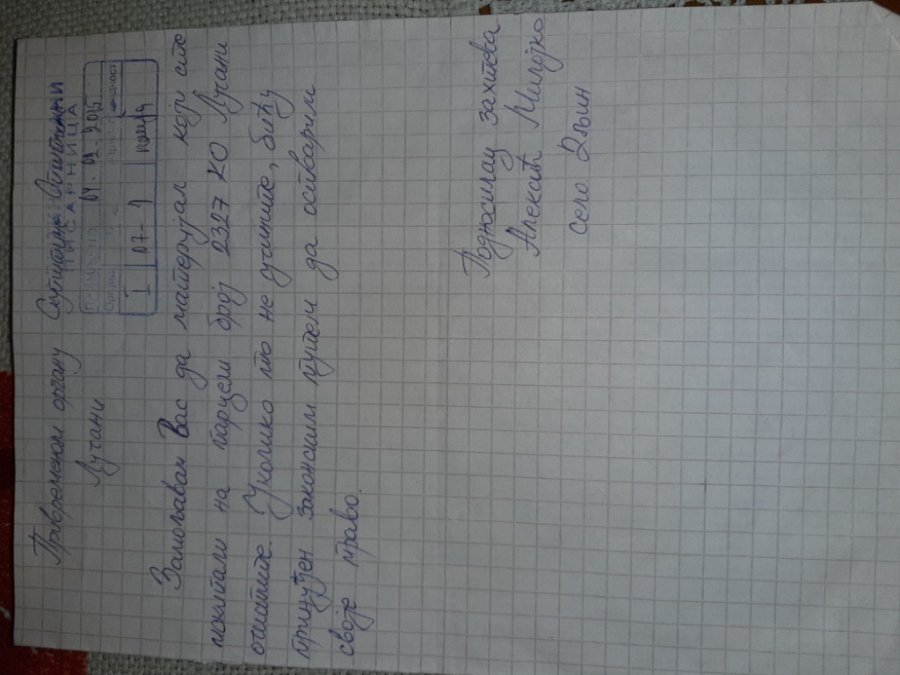 Привременом органу Скупштине Општини
Лучани
ПИСАРНИЦА
04-09-2015
I 07-1
Замољавам Вас да материјал који сте
искипали на парцели број 2327 КО Лучани
очистите. Уколико то не учините, бићу
принуђен законским путем да остварим
своје право.
Подносилац захтева
Алексић Милојко
село Дљин